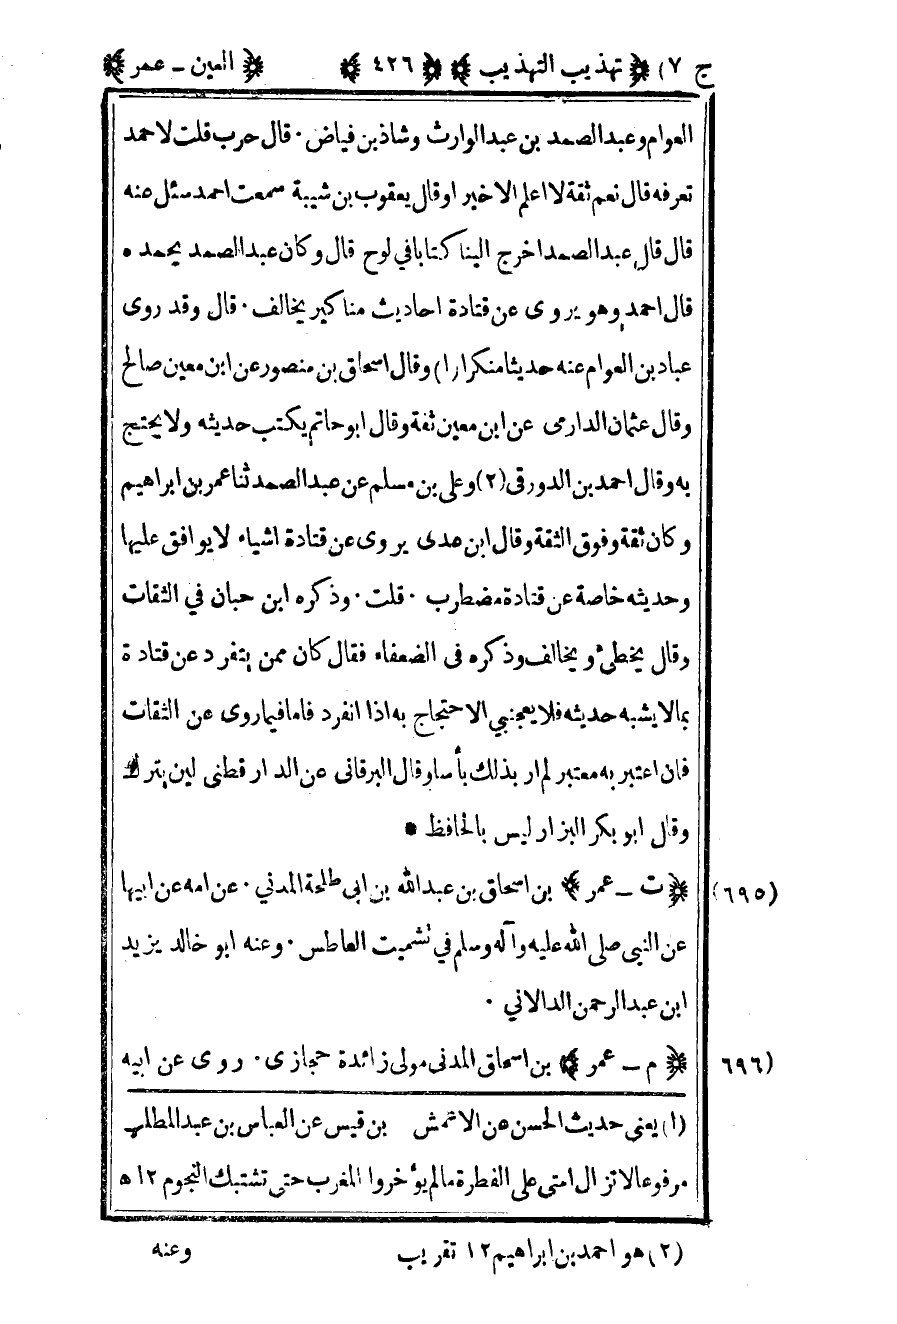 ج ٧) ﴿ تهذيب التهذيب ﴾ ﴿ ٤٢٦ ﴾ ﴿ العين ــ عمر ﴾
العوام وعبد الصمد بن عبد الوارث وشاذ بن فياض · قال حرب قلت لاحمد
تعرفه قال نعم ثقة لا اعلم الا خيرا وقال يعقوب بن شيبة سمعت احمد سئل عنه
قال قال عبد الصمد اخرج الينا كتابا في لوح قال وكان عبد الصمد يحمده
قال احمد وهو يروى عن قتادة احاديث مناكير يخالف · قال وقد روى
عباد بن العوام عنه حديثا منكرا (١) وقال اسحاق بن منصور عن ابن معين صالح
وقال عثمان الدارمى عن ابن معين ثقة وقال ابو حاتم يكتب حديثه ولا يحتج
به وقال احمد بن الدورقى (٢) وعلى بن مسلم عن عبد الصمد ثنا عمر بن ابراهيم
وكان ثقة وفوق الثقة وقال ابن عدى يروى عن قتادة اشياء لا يوافق عليها
وحديثه خاصة عن قتادة مضطرب · قلت · وذكره ابن حبان في الثقات
وقال يخطئ ويخالف وذكره فى الضعفاء فقال كان ممن يتفرد عن قتادة
بما لا يشبه حديثه فلا يعجبني الاحتجاج به اذا انفرد فاما فيما روى عن الثقات
فان اعتبر به معتبر لم ار بذلك بأسا وقال البرقانى عن الدارقطنى لين يترك
وقال ابو بكر البزار ليس بالحافظ •
(٦٩٥) ﴿ ت ــ عمر ﴾ بن اسحاق بن عبد الله بن ابى طلحة المدني · عن امه عن ابيها
عن النبى صلى الله عليه وآله وسلم في تشميت العاطس · وعنه ابو خالد يزيد
ابن عبد الرحمن الدالاني ·
(٦٩٦ ﴿ م ــ عمر ﴾ بن اسحاق المدنى مولى زائدة حجازى · روى عن ابيه
(١) يعنى حديث الحسن عن الاحنف بن قيس عن العباس بن عبد المطلب
مرفوعا لا تزال امتى على الفطرة ما لم يؤخروا المغرب حتى تشتبك النجوم ١٢ ه
(٢) هو احمد بن ابراهيم ١٢ تقريب وعنه